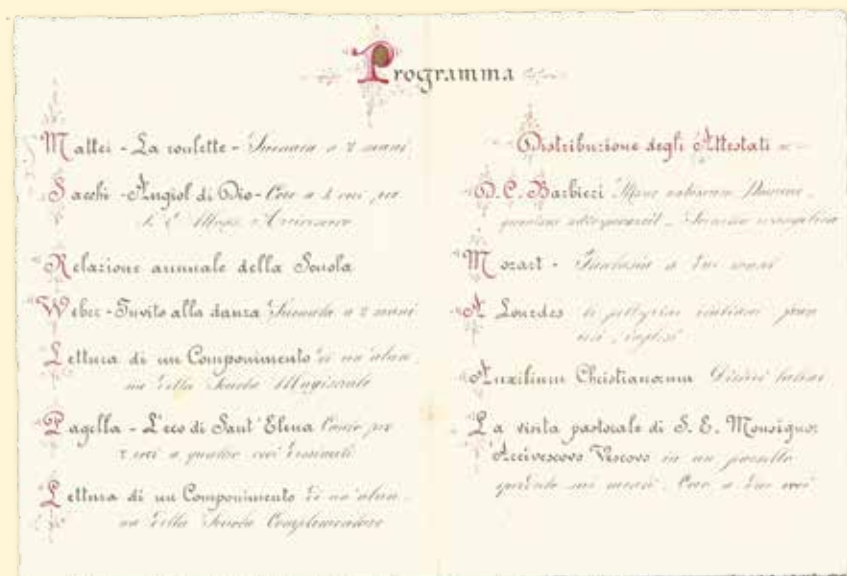 Programma
Mattei - La roulette - Suonata a 2 mani
Sacchi - Angiol di Dio - Coro a 4 voci per
S. E. Mons. Arcivescovo
Relazione annuale della Scuola
Weber - Invito alla danza Suonata a 2 mani
Lettura di un Componimento di un'alun-
na della Scuola Magistrale
Pagella - L'eco di Sant'Elena Coro per
voci a quattro voci dissimili
Lettura di un Componimento di un'alun-
na della Scuola Complementare
Distribuzione degli Attestati
D. C. Barbieri
evangelica
Mozart - Fantasia a due mani
A Lourdes li pellegrini italiani fran
cesi, inglesi
Auxilium Christianorum Distici latini
La visita pastorale di S. E. Monsignor
Arcivescovo Vescovo in un paesello
sui monti. Coro a due voci